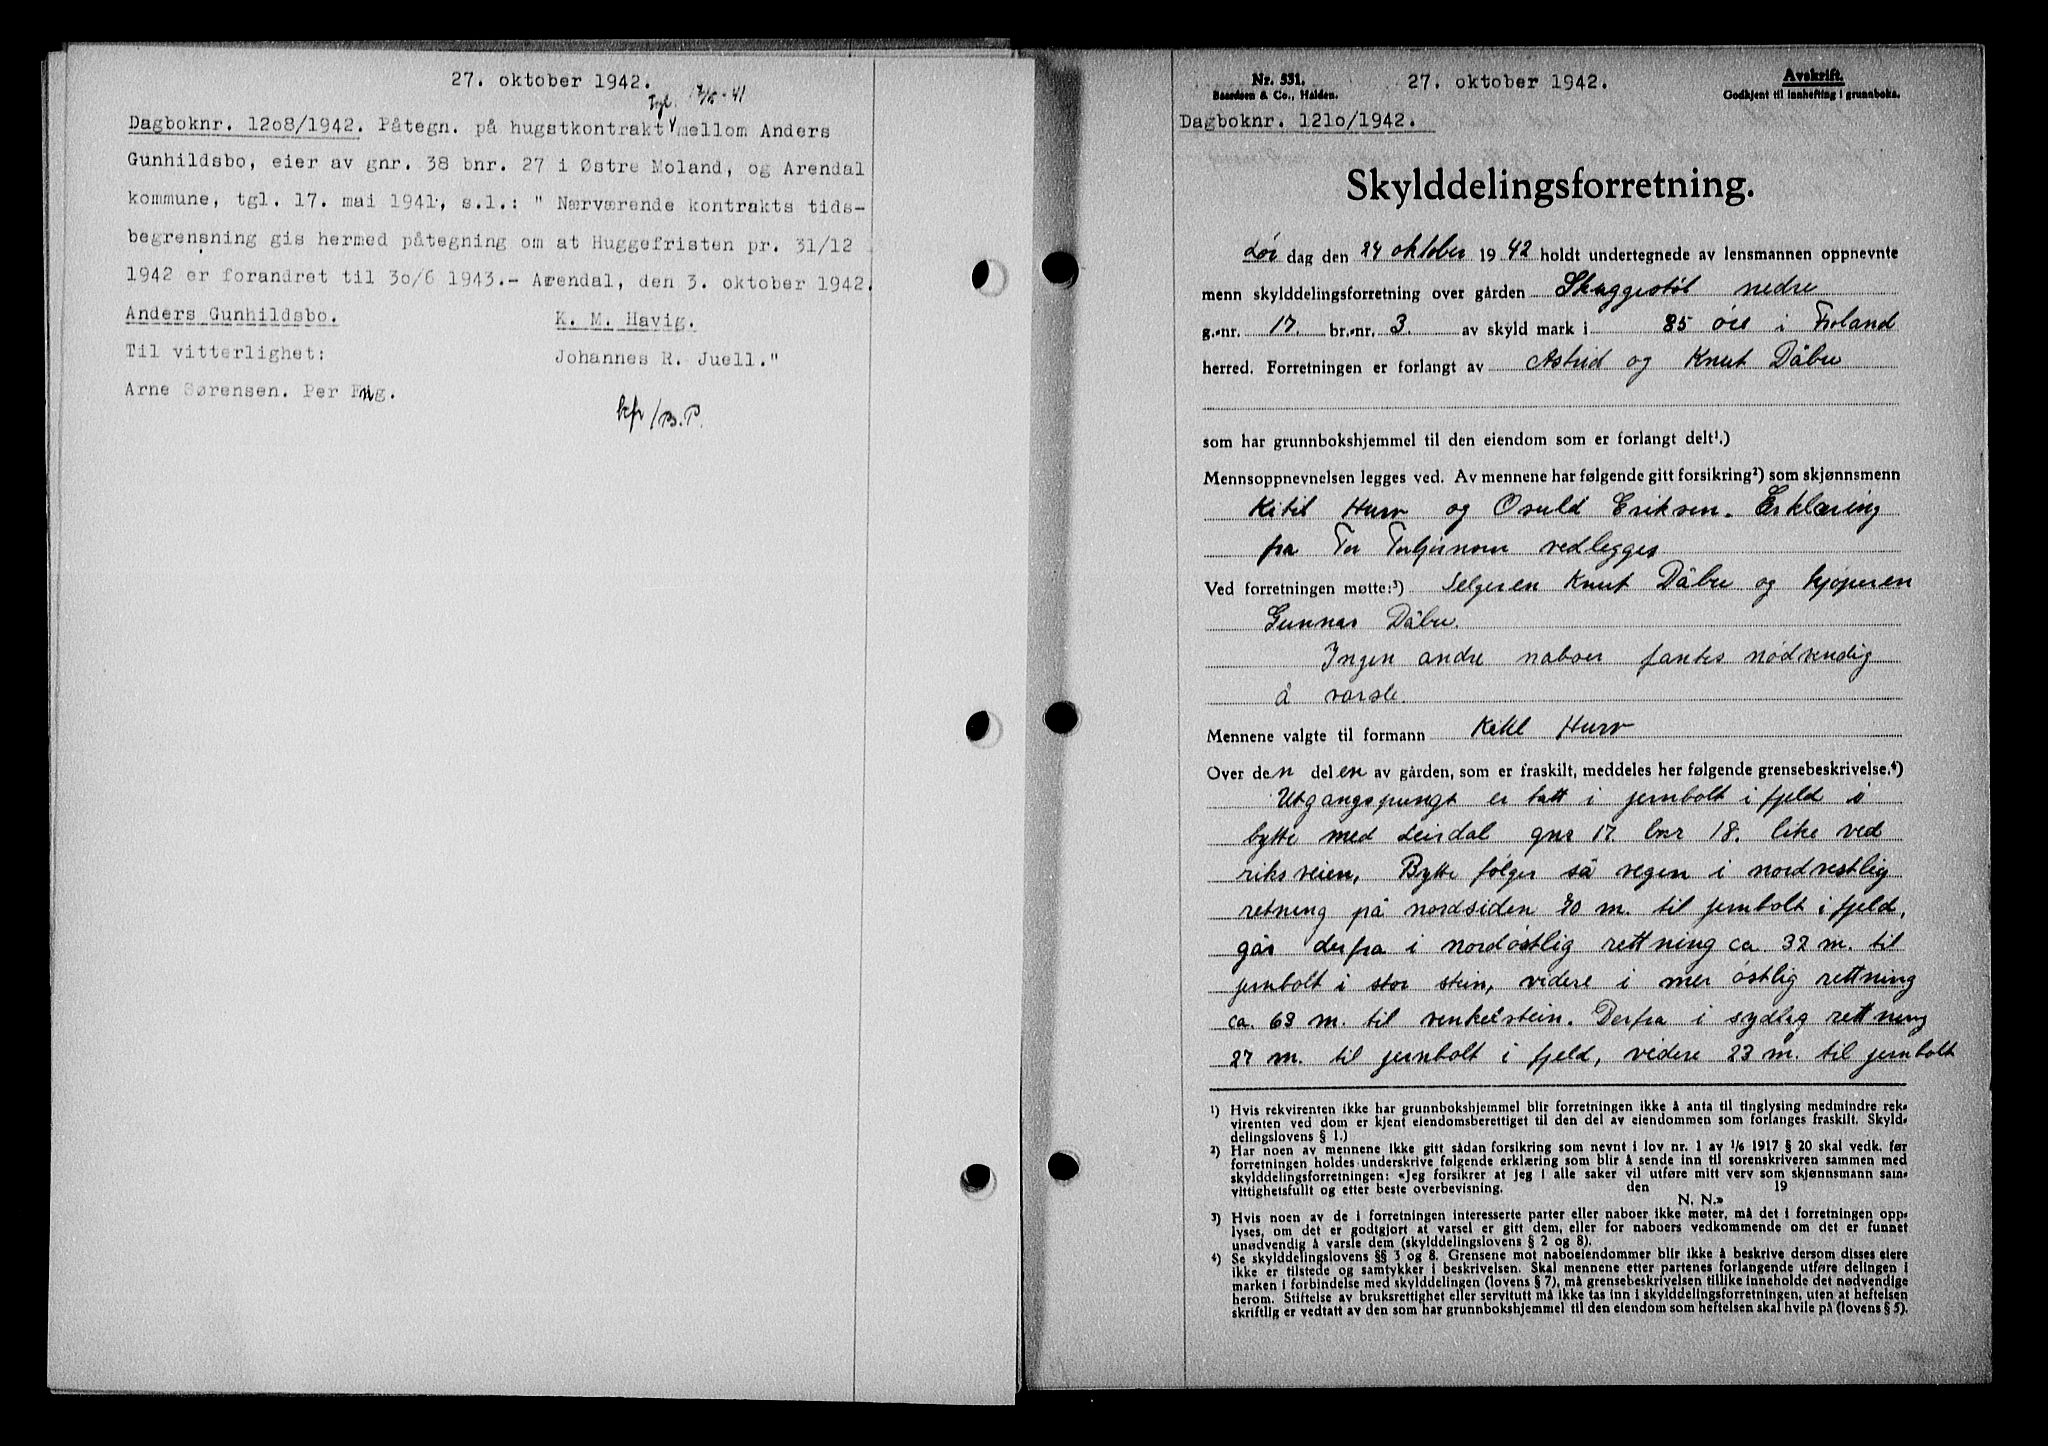 27. oktober 1942.
Tgl. 17/5-41
Dagboknr. 12o8/1942. Påtegn. på hugstkontrakt mellom Anders
Gunhildsbo, eier av gnr. 38 bnr. 27 i Østre Moland, og Arendal
kommune, tgl. 17. mai 1941, s.l.: " Nærværende kontrakts tids-
begrensning gis hermed påtegning om at Huggefristen pr. 31/12
1942 er forandret til 3o/6 1943.- Arendal, den 3. oktober 1942.
Anders Gunhildsbo. K. M. Havig.
Til vitterlighet: Johannes R. Juell."
Arne Sørensen. Per Eng.
kfr/B.P.
Nr. 531.
Baardsen & Co., Halden.
27. oktober 1942.
Avskrift.
Godkjent til innhefting i grunnboka.
Dagboknr. 121o/1942.
Skylddelingsforretning.
Lør dag den 24 oktober 1942 holdt undertegnede av lensmannen oppnevnte
menn skylddelingsforretning over gården Skuggestöl nedre
g.-nr. 17. br.-nr. 3. av skyld mark i 85 öre i Froland
herred. Forretningen er forlangt av Astrid og Knut Dåbu
som har grunnbokshjemmel til den eiendom som er forlangt delt¹.)
Mennsoppnevnelsen legges ved. Av mennene har følgende gitt forsikring²) som skjønnsmenn
Ketil Hurv og Osuld Eriksen. Erklæring
fra Tor vedlegges
Ved forretningen møtte:³) Selgeren Knut Dåbu og kjöperen
Gunnar Dåbu.
Ingen andre naboer fantes nödvendig
å varsle.
Mennene valgte til formann Ketil Hurv
Over den delen av gården, som er fraskilt, meddeles her følgende grensebeskrivelse.⁴)
Utgangspungt er tatt i jernbolt i fjeld i
bytte med Leirdal gnr 17. bnr 18. like ved
riksveien, Bytte følger så vegen i nordvestlig
retning på nordsiden 70 m. til jernbolt i fjeld,
går derfra i nordöstlig rettning ca 32 m. til
jernbolt i stor stein, videre i mer östlig rettning
ca. 68 m. til venkelstein. Derfra i sydlig rettning
27 m. til jernbolt i fjeld, videre 23 m. til jernbolt
¹) Hvis rekvirenten ikke har grunnbokshjemmel blir forretningen ikke å anta til tinglysing medmindre rek-
virenten ved dom er kjent eiendomsberettiget til den del av eiendommen som forlanges fraskilt. (Skyld-
delingslovens § 1.)
²) Har noen av mennene ikke gitt sådan forsikring som nevnt i lov nr. 1 av 1/6 1917 § 20 skal vedk. før
forretningen holdes underskrive følgende erklæring som blir å sende inn til sorenskriveren sammen med
skylddelingsforretningen: «Jeg forsikrer at jeg i alle saker vil utføre mitt verv som skjønnsmann sam-
vittighetsfullt og etter beste overbevisning. den 19
N. N.»
³) Hvis noen av de i forretningen interesserte parter eller naboer ikke møter, må det i forretningen opp-
lyses, om det er godtgjort at varsel er gitt dem, eller for naboers vedkommende om det er funnet
unødvendig å varsle dem (skylddelingslovens § 2 og 8).
⁴) Se skylddelingslovens §§ 3 og 8. Grensene mot naboeiendommer blir ikke å beskrive dersom disses eiere
ikke er tilstede og samtykker i beskrivelsen. Skal mennene etter partenes forlangende utføre delingen i
marken i forbindelse med skylddelingen (lovens § 7), må grensebeskrivelsen tillike inneholde det nødvendige
herom. Stiftelse av bruksrettighet eller servitutt må ikke tas inn i skylddelingsforretningen, uten at heftelsen
skriftlig er vedtatt av den som har grunnbokshjemmel til den eiendom som heftelsen skal hvile på (lovens § 5).